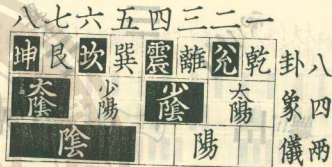 八七六五四三二一
坤艮坎巽震離兌乾卦八
太陰少陽少陰太陽象四
陰陽儀兩